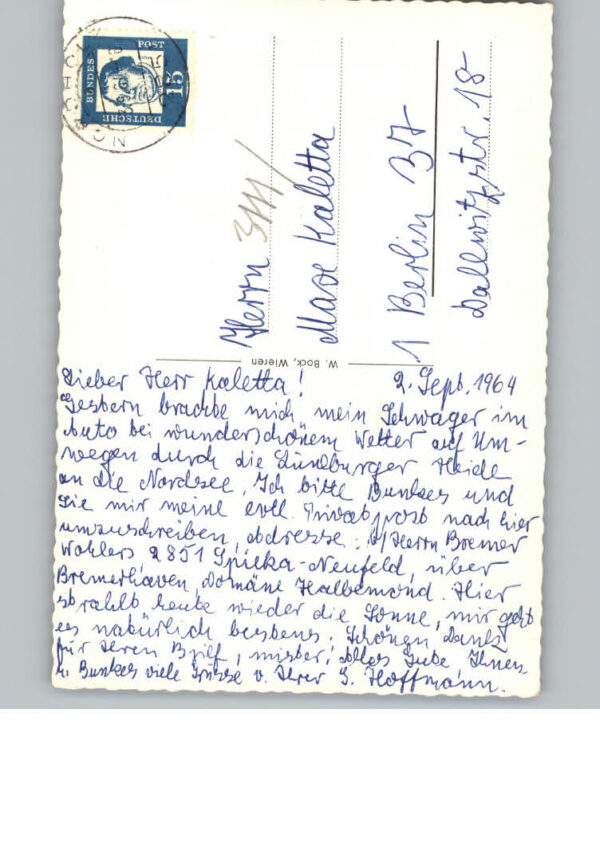 DEUTSCHE
BUNDES
POST
15
Herrn
Max Kaletta
1 Berlin 37
Dallwitzstr. 18
W. Bock, Wieren
Lieber Herr Kaletta! 2. Sept. 1964
Gestern brachte mich mein Schwager im
Auto bei wunderschönem Wetter auf Um-
wegen durch die Lüneburger Heide
an die Nordsee. Ich bitte Bunkes und
Sie mir meine evtl. Privatpost nach hier
umzuschreiben, Adresse: Herrn Bremer
Wohlers 2851 Spieka-Neufeld, über
Bremerhaven, Domäne Halbemond. Hier
strahlt heute wieder die Sonne, mir geht
es natürlich bestens. Schönen Dank
für Ihren Brief, Alles Gute Ihnen
u. Bunkes viele Grüsse v. Ihrer S. Hoffmann.